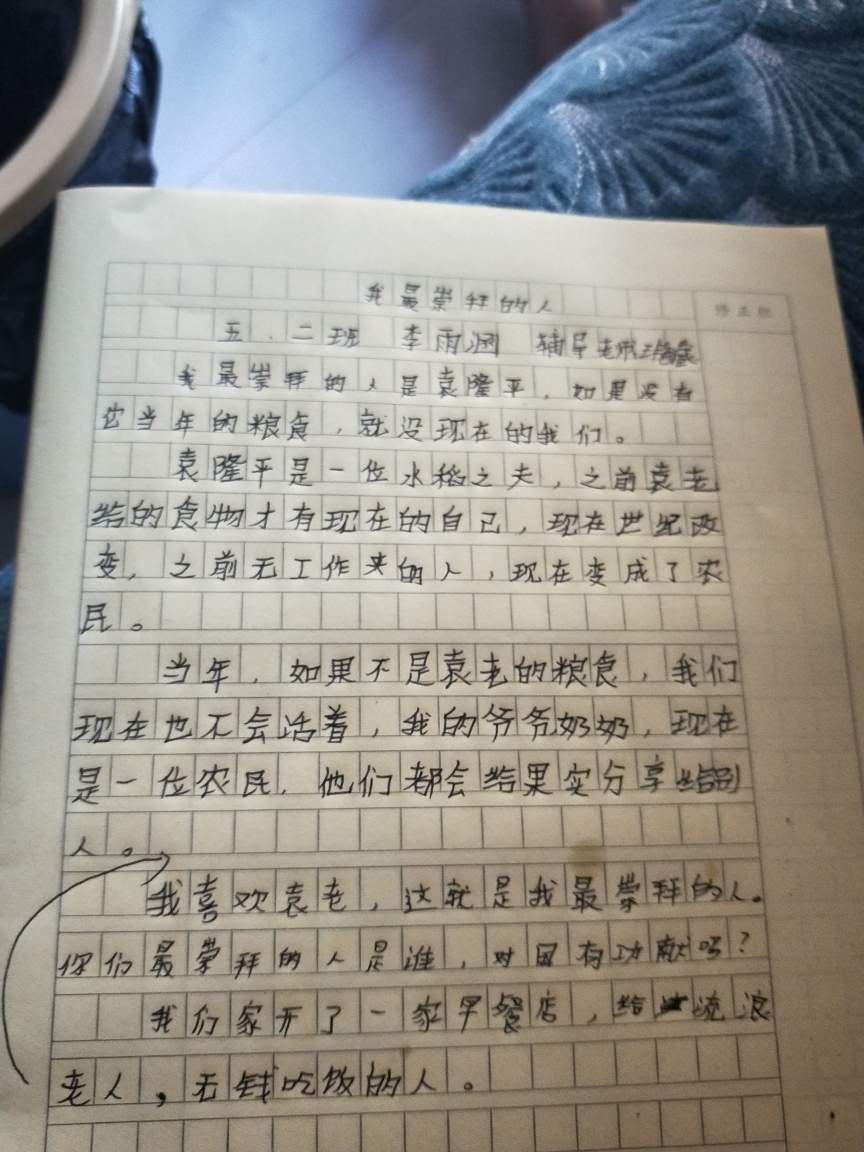 我最崇拜的人
修正栏
五.二班 李雨涵 辅导老师
我最崇拜的人是袁隆平，如果没有
它当年的粮食，就没现在的我们。
袁隆平是一位水稻之夫，之前袁老
给的食物才有现在的自己，现在世纪改
变，之前无工作来的人，现在变成了农
民。
当年，如果不是袁老的粮食，我们
现在也不会活着，我的爷爷奶奶，现在
是一位农民，他们都会给果实分享给别
人。
我喜欢袁老，这就是我最崇拜的人。
你们最崇拜的人是谁，对国有功献吗？
我们家开了一家早餐店，给流浪
老人，无钱吃饭的人。